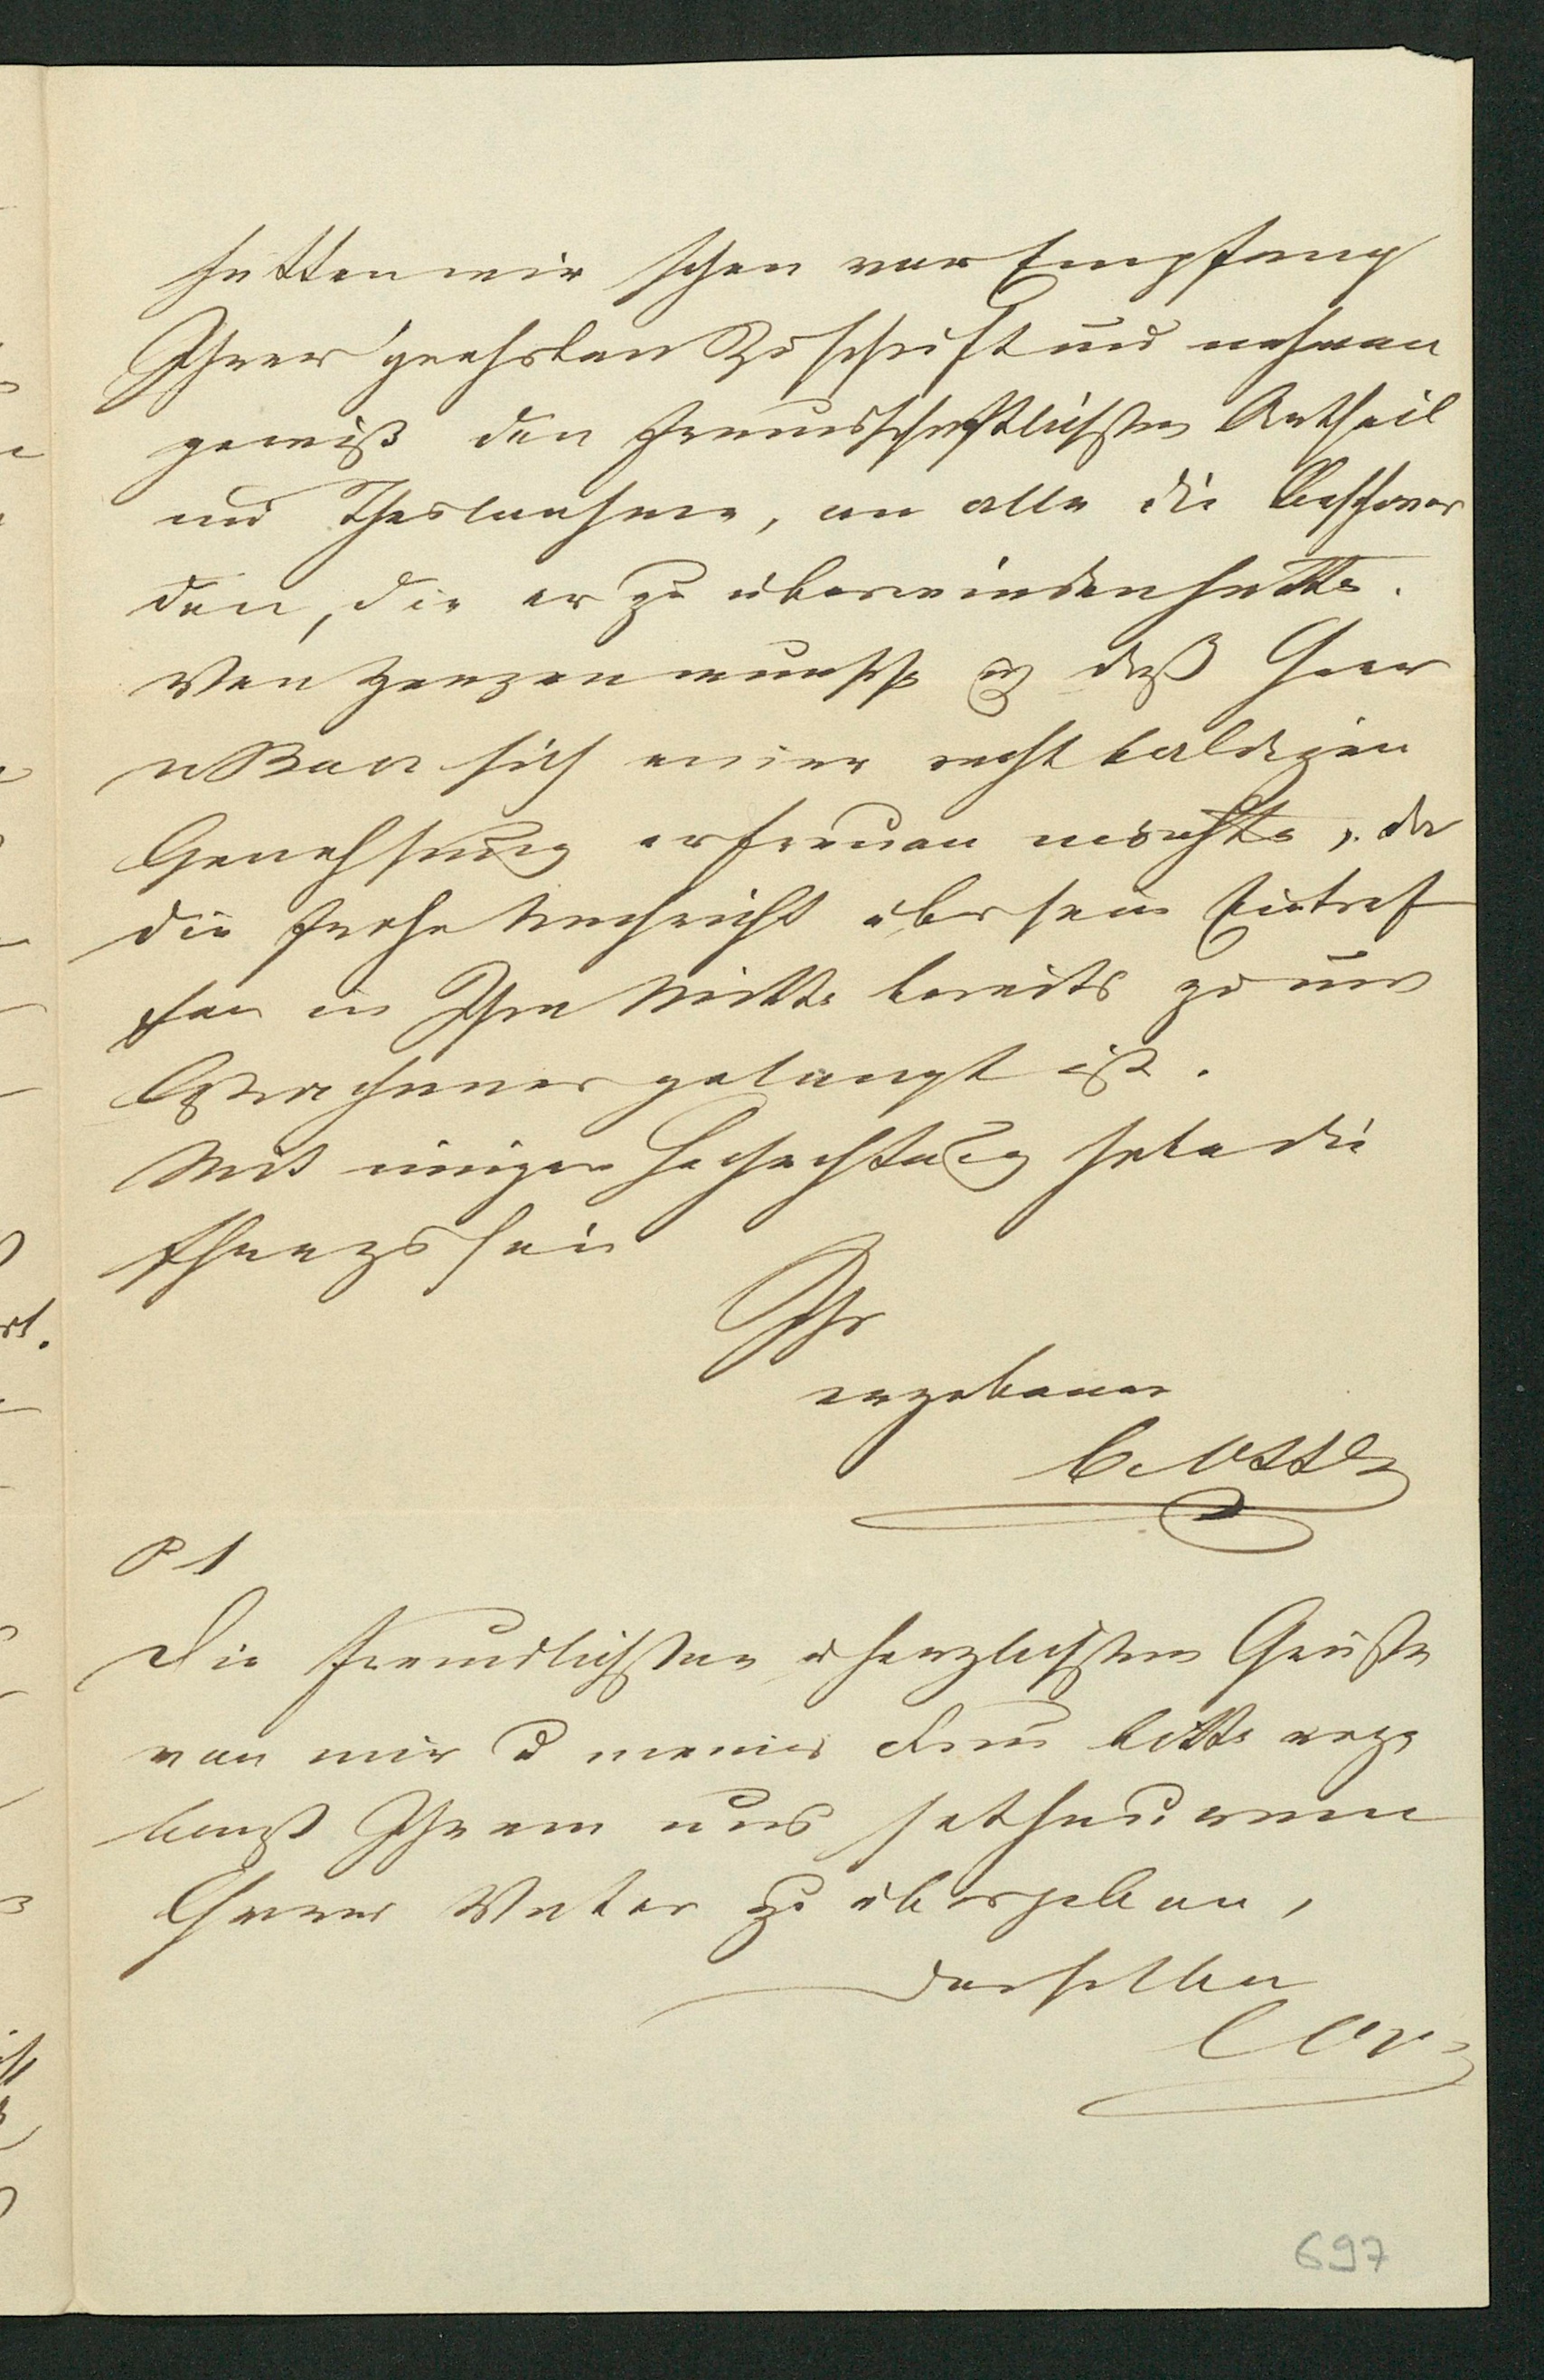 hatten wir schon vor Empfang
Ihrer geehrten Zuschrift und nehmen
gewiß den freundschaftlichsten Antheil
und Theilnahme, an alle die Beschwer
den, die er zu überwinden hatte.
Von Herzen wünsche ich daß Herr
sich einer recht baldigen
Genehsung erfreuen möchte, da
die frohe Nachricht über sein Eintref
fen in Ihre Mitte bereits zu uns
gelangt ist.
Mit inniger Hochachtung habe die
Ehre zu sein
Ihr
ergebener
C.
P S
Die freundlichsten u herzlichsten Grüße
von mir u meiner Frau bitte erge
benst Ihrem uns so theuren
Herrn Vater zu übergeben,
derselbe
697